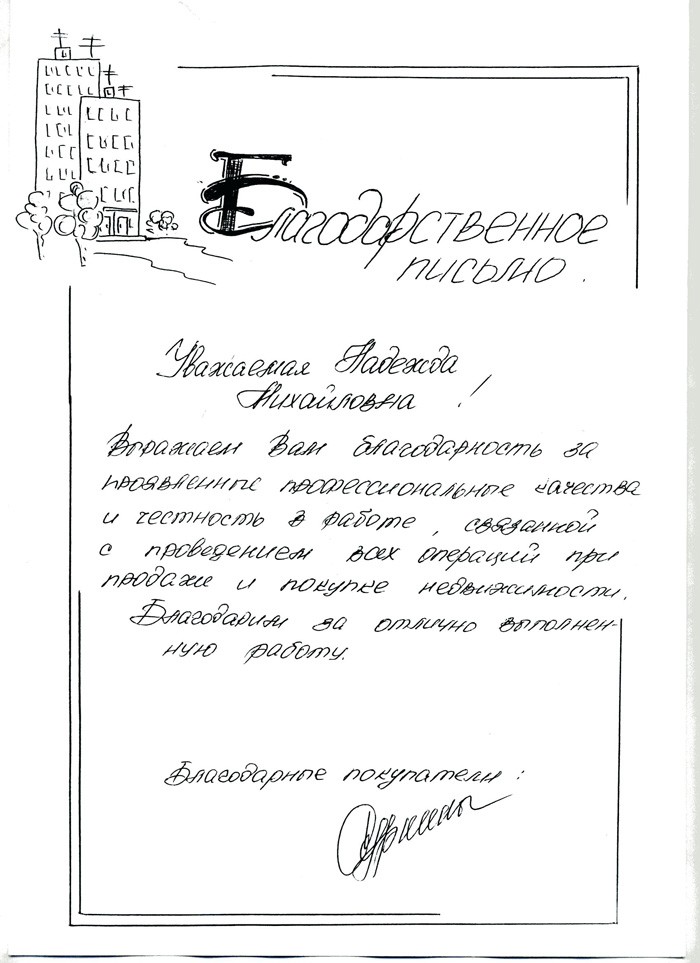 Благодарственное
письмо.
Уважаемая Надежда
Михайловна!
Выражаем Вам благодарность за
проявленные профессиональные качества
и честность в работе, связанной
с проведением всех операций при
продаже и покупке недвижимости.
Благодарим за отлично выполнен-
ную работу.
Благодарные покупатели: